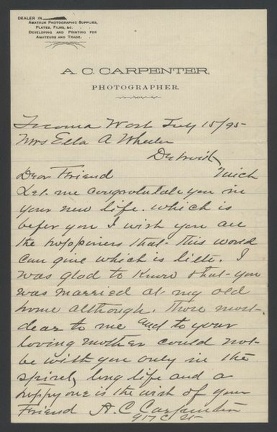 DEALER IN
AMATEUR PHOTOGRAPHIC SUPPLIES,
PLATES, FILMS, &C.
DEVELOPING AND PRINTING FOR
AMATEURS AND TRADE.
A. C. CARPENTER,
PHOTOGRAPHER.
Tacoma Wash July 15/95
Mrs Ella A Wheeler
Detroit
Dear Friend Mich
Let me congratulate you in
your new life. which is
befor you I wish you all
the happiness that this world
can give which is little. I
was glad to know that you
was married at my old
home although. Those most
dear to me and to your
loving mother could not
be with you only in the
spirit, long life and a
happy one is the wish of your
Friend A. C. Carpenter
917 C St